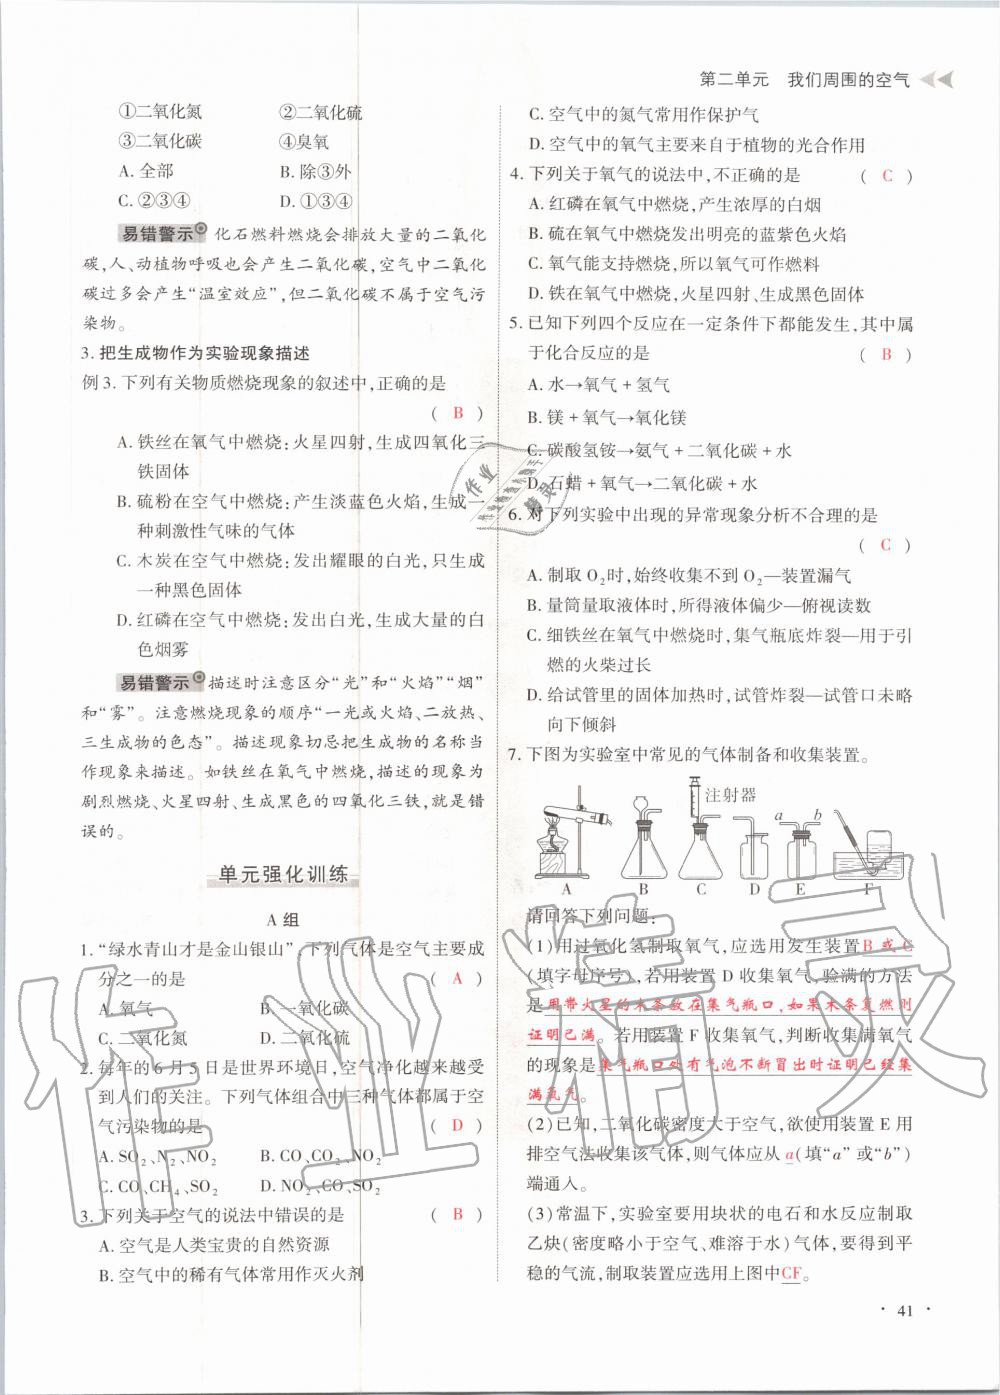 第二单元 我们周围的空气
①二氧化氮 ②二氧化硫
③二氧化碳 ④臭氧
A. 全部 B. 除③外
C. ②③④ D. ①③④
易错警示 化石燃料燃烧会排放大量的二氧化
碳,人、动植物呼吸也会产生二氧化碳,空气中二氧化
碳过多会产生“温室效应”,但二氧化碳不属于空气污
染物。
3. 把生成物作为实验现象描述
例 3. 下列有关物质燃烧现象的叙述中,正确的是
( B )
A. 铁丝在氧气中燃烧:火星四射,生成四氧化三
铁固体
B. 硫粉在空气中燃烧:产生淡蓝色火焰,生成一
种刺激性气味的气体
C. 木炭在空气中燃烧:发出耀眼的白光,只生成
一种黑色固体
D. 红磷在空气中燃烧:发出白光,生成大量的白
色烟雾
易错警示 描述时注意区分“光”和“火焰”“烟”
和“雾”。注意燃烧现象的顺序“一光或火焰、二放热、
三生成物的色态”。描述现象切忌把生成物的名称当
作现象来描述。如铁丝在氧气中燃烧,描述的现象为
剧烈燃烧、火星四射、生成黑色的四氧化三铁,就是错
误的。
单元强化训练
A 组
1. “绿水青山才是金山银山”,下列气体是空气主要成
分之一的是 ( A )
A. 氧气 B. 一氧化碳
C. 二氧化氮 D. 二氧化硫
2. 每年的 6 月 5 日是世界环境日,空气净化越来越受
到人们的关注。下列气体组合中三种气体都属于空
气污染物的是 ( D )
A. SO₂、N₂、NO₂ B. CO、CO₂、NO₂
C. CO、CH₄、SO₂ D. NO₂、CO、SO₂
3. 下列关于空气的说法中错误的是 ( B )
A. 空气是人类宝贵的自然资源
B. 空气中的稀有气体常用作灭火剂
C. 空气中的氮气常用作保护气
D. 空气中的氧气主要来自于植物的光合作用
4. 下列关于氧气的说法中,不正确的是 ( C )
A. 红磷在氧气中燃烧,产生浓厚的白烟
B. 硫在氧气中燃烧发出明亮的蓝紫色火焰
C. 氧气能支持燃烧,所以氧气可作燃料
D. 铁在氧气中燃烧,火星四射、生成黑色固体
5. 已知下列四个反应在一定条件下都能发生,其中属
于化合反应的是 ( B )
A. 水→氧气 + 氢气
B. 镁 + 氧气→氧化镁
C. 碳酸氢铵→氨气 + 二氧化碳 + 水
D. 石蜡 + 氧气→二氧化碳 + 水
6. 对下列实验中出现的异常现象分析不合理的是
( C )
A. 制取 O₂时,始终收集不到 O₂—装置漏气
B. 量筒量取液体时,所得液体偏少—俯视读数
C. 细铁丝在氧气中燃烧时,集气瓶底炸裂—用于引
燃的火柴过长
D. 给试管里的固体加热时,试管炸裂—试管口未略
向下倾斜
7. 下图为实验室中常见的气体制备和收集装置。
注射器
a b
A B C D E F
请回答下列问题:
(1)用过氧化氢制取氧气,应选用发生装置B 或 C
(填字母序号),若用装置 D 收集氧气,验满的方法
是用带火星的木条放在集气瓶口,如果木条复燃则
证明已满。若用装置 F 收集氧气,判断收集满氧气
的现象是集气瓶口处有气泡不断冒出时证明已经集
满氧气。
(2)已知,二氧化碳密度大于空气,欲使用装置 E 用
排空气法收集该气体,则气体应从 a(填“a”或“b”)
端通入。
(3)常温下,实验室要用块状的电石和水反应制取
乙炔(密度略小于空气、难溶于水)气体,要得到平
稳的气流,制取装置应选用上图中CF。
· 41 ·
作业精灵